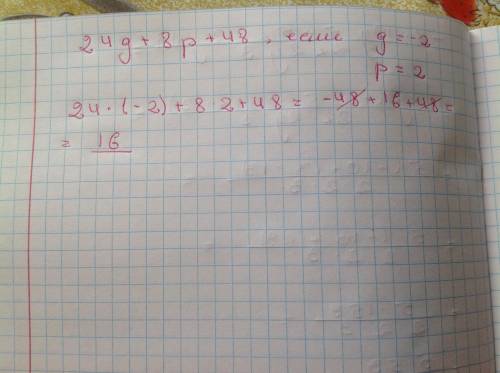 24g + 8p + 48, если g = -2
p = 2
24 · (-2) + 8 2 + 48 = -48 + 16 + 48 =
= 16